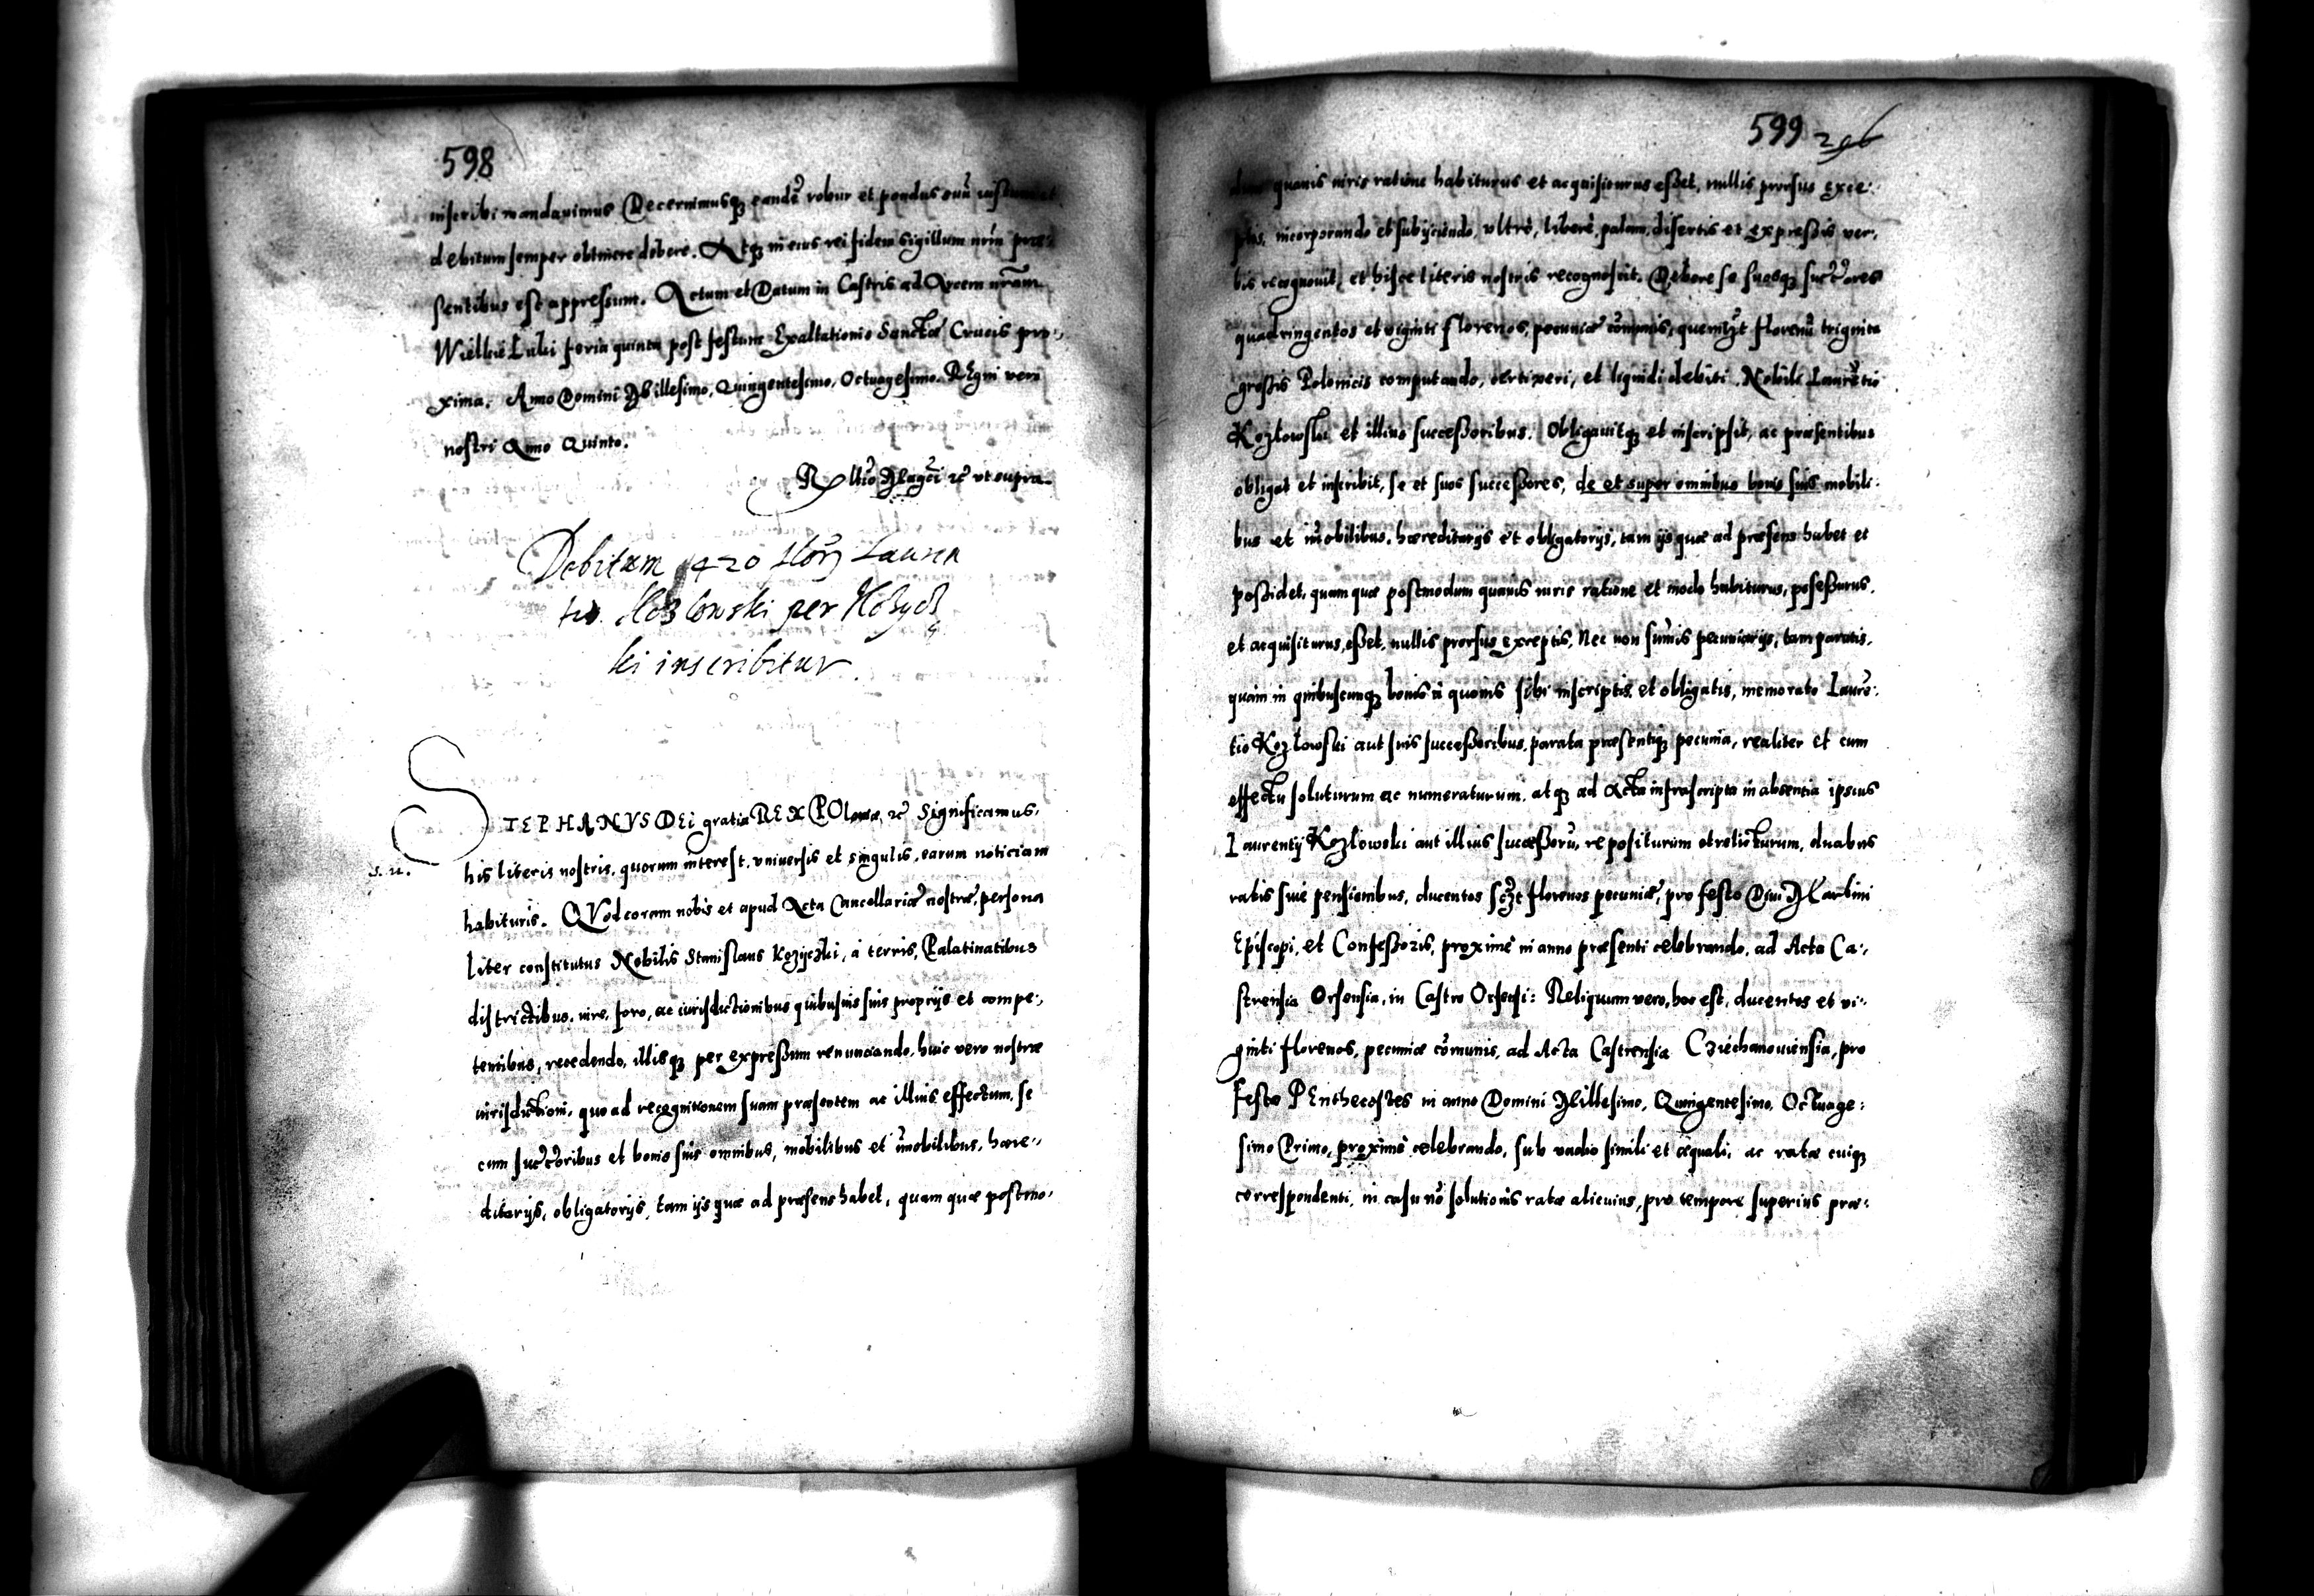 598
inscribi mandavimus Decernimusq₃ eandē robur et pondus
debitum semper obtinere debere. Atq₃ in eius rei fidem Sigillum nrm præ⸗
sentibus est appressum. Actum et Datum in Castris ad Arcem nr̃am
Wielkie Luki feria quinta post festum Exaltationis Sanctæ Crucis pro⸗
xima. Anno Domini Millesimo, Quingentesimo, Octuagesimo. REgni vero
nostri Anno Quinto.
Rllio Magci zc ut supra.
Debitum 420 flor Lauren
tio Kozlowski per Kozycz
ki inscribitur.
STEPHANVS DEi gratia REX POloniæ, zc Significamus,
his literis nostris, quorum interest, vniversis et singulis, earum noticiam
habituris. QVod coram nobis et apud Acta Cancellariæ nostræ, persona
liter constitutus Nobilis Stanislaus Kozyczki, à terris, Palatinatibus
districtibus, iure, foro, ac iurisdictionibus quibusuis suis proprijs et compe⸗
tentibus, recedendo, illisq₃ per expressum renunciando, huic vero nostræ
iurisdictioni, quo ad recognitionem suam præsentem ac illius effectum, se
cum succ̃oribus et bonis suis omnibus, mobilibus et im̃obilibus, hære⸗
ditarijs, obligatorijs, tam ijs quæ ad præsens habet, quam quæ postmo⸗
599 296
quauis iuris ratione habiturus et acquisiturus esset, nullis prorsus exce⸗
ptis, incorporando et subijciendo, vltrò, liberè, palam, disertis et expressis ver⸗
bis recognouit, et hisce literis nostris recognoscit. Debere se suosq₃ succ̃ores
quadringentos et viginti florenos, pecuniæ com̃unis, quemlꝫt florenũ triginta
grossis Polonicis computando, certi, veri, et liquidi debiti. Nobili Laurẽtio
Kozlowski et illius successoribus. Obligauitq₃ et inscripsit, ac præsentibus
obligat et inscribit, se et suos successores, de et super omnibus bonis suis mobili⸗
bus et im̃obilibus, hæreditarijs et obligatorijs, tam ijs quæ ad præsens habet et
possidet, quam quæ postmodum quauis iuris ratione et modo habiturus, possessurus,
et acquisiturus, esset, nullis prorsus exceptis, Nec non sum̃is pecuniarijs, tam paratis,
quàm in quibuscunq₃ bonis à quouis sibi inscriptis et obligatis, memorato Laurẽ⸗
tio Kozlowski aut suis successoribus, parata præsentiq₃ pecunia, realiter et cum
effectu soluturum ac numeraturum, atq₃ ad Acta infrascripta in absentia ipsius
Laurentij Kozlowski aut illius successorũ, repositurum et relicturum, duabus
ratis siue pensionibus, ducentos scꝫt florenos pecuniæ, pro festo Diui Martini
Episcopi, et Confessoris, proximè in anno præsenti celebrando, ad Acta Ca⸗
strensia Orsensia, in Castro Orsensi: Reliquum vero, hoc est, ducentos et vi⸗
ginti florenos, pecuniæ com̃unis, ad Acta Castrensia Cziechanouiensia, pro
festo PEnthecostes in anno Domini Millesimo, Quingentesimo, Octuage⸗
simo Primo, proximè celebrando, sub vadio simili et æquali, ac ratæ cuiq₃
correspondenti, in casu nõ solutionis ratæ alicuius, pro tempore superius præ⸗